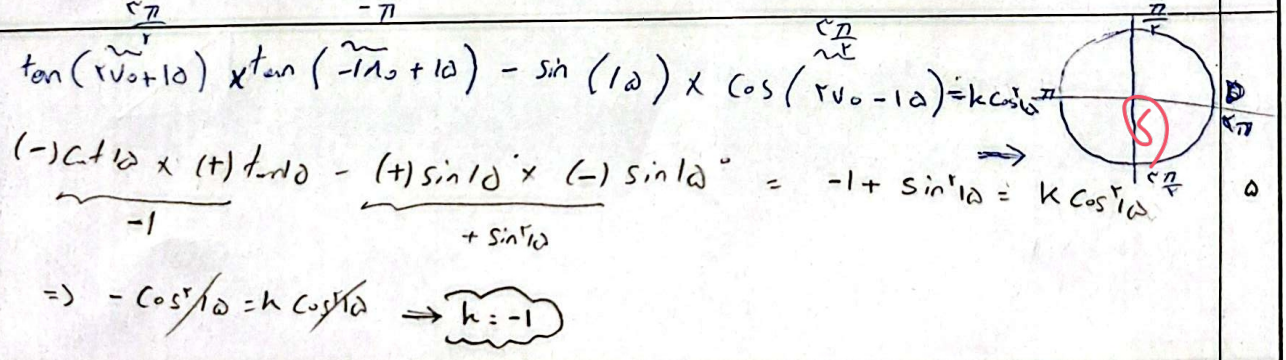 ۳π/۲ -π ۳π/۲ π/۲
tan(۲۷۰+۱۵) × tan(-۱۸۰+۱۵) - sin(۱۵) × cos(۲۷۰-۱۵) = k cos²۱۵ π ۲π
(-)cot ۱۵ × (+) tan ۱۵ - (+) sin ۱۵° × (-) sin ۱۵° = -1 + sin²۱۵ = k cos²۱۵ ⇒ ۳π/۲ ۵
-1 + sin²۱۵
⇒ - cos²۱۵ = k cos²۱۵ → k = -1